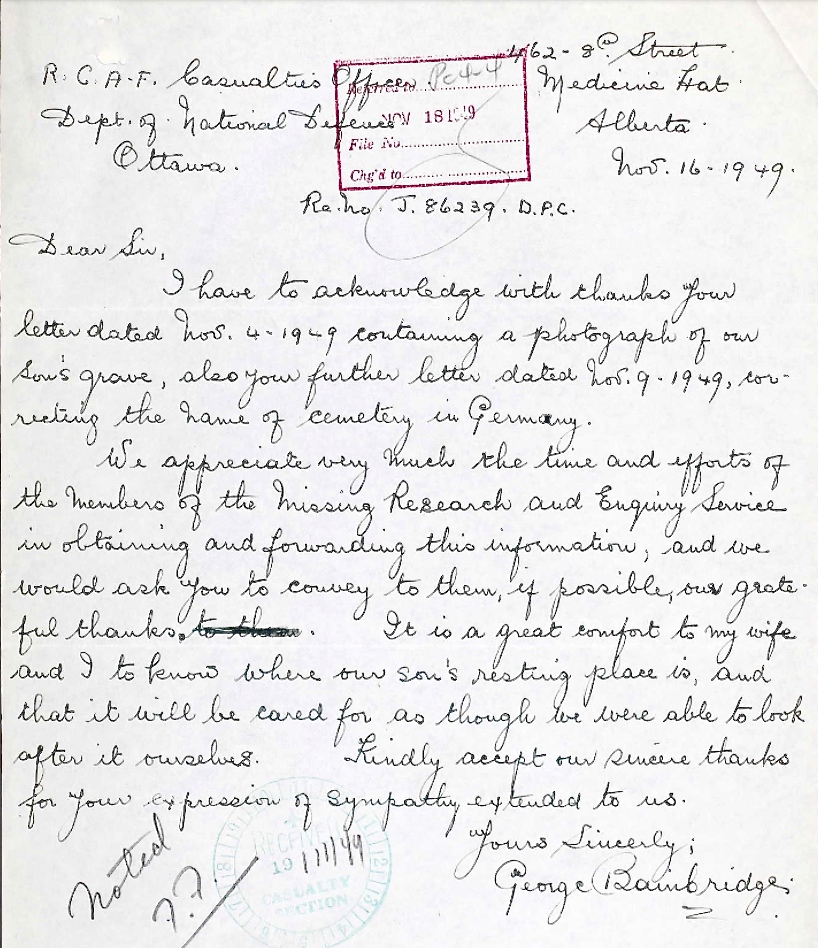 462 - 8th Street.
R.C.A.F. Casualties Officer Medicine Hat.
Dept. of National Defence Alberta.
Ottawa. Nov. 16 - 1949.
Referred to
NOV 18 1949
File No.
Chg'd to
Re. No. J. 86239. D.P.C.
Dear Sir,
I have to acknowledge with thanks your
letter dated Nov. 4 - 1949 containing a photograph of our
son's grave, also your further letter dated Nov. 9 - 1949, cor-
recting the name of cemetery in Germany.
We appreciate very much the time and efforts of
the members of the Missing Research and Enquiry Service
in obtaining and forwarding this information, and we
would ask you to convey to them, if possible, our grate-
ful thanks. to them. It is a great comfort to my wife
and I to know where our son's resting place is, and
that it will be cared for as though we were able to look
after it ourselves. Kindly accept our sincere thanks
for your expression of sympathy extended to us.
Yours Sincerly;
George Bainbridge.
Noted
RECEIVED
19/11/49
CASUALTY
SECTION